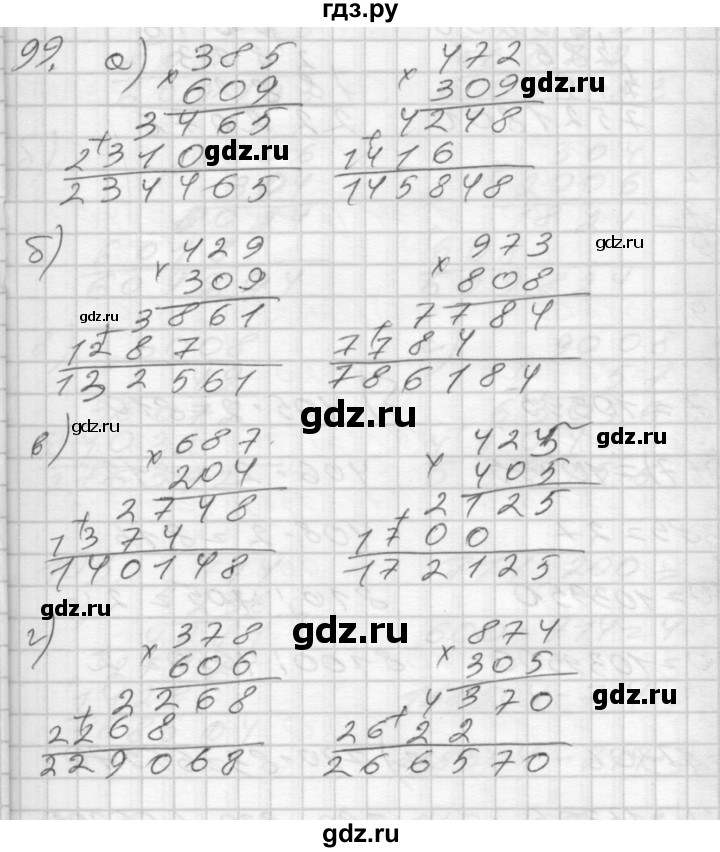 гдз.ру
99. а) 385 472
× 609 × 309
gdz.ru
3465 4248
+ 2310 + 1416
gdz.ru
234465 145848
б) 429 973
gdz.ru
× 309 × 808
3861 7784
gdz.ru
+ 1287 + 7784
132561 786184
gdz.ru
в) gdz.ru 687 425 gdz.ru
× 204 × 405
2748 2125
+ 1374 + 1700
140148 172125
gdz.ru gdz.ru
г) 378 874
× 606 × 305
2268 4370
gdz.ru
+ 2268 + 2622
229068 266570
gdz.ru